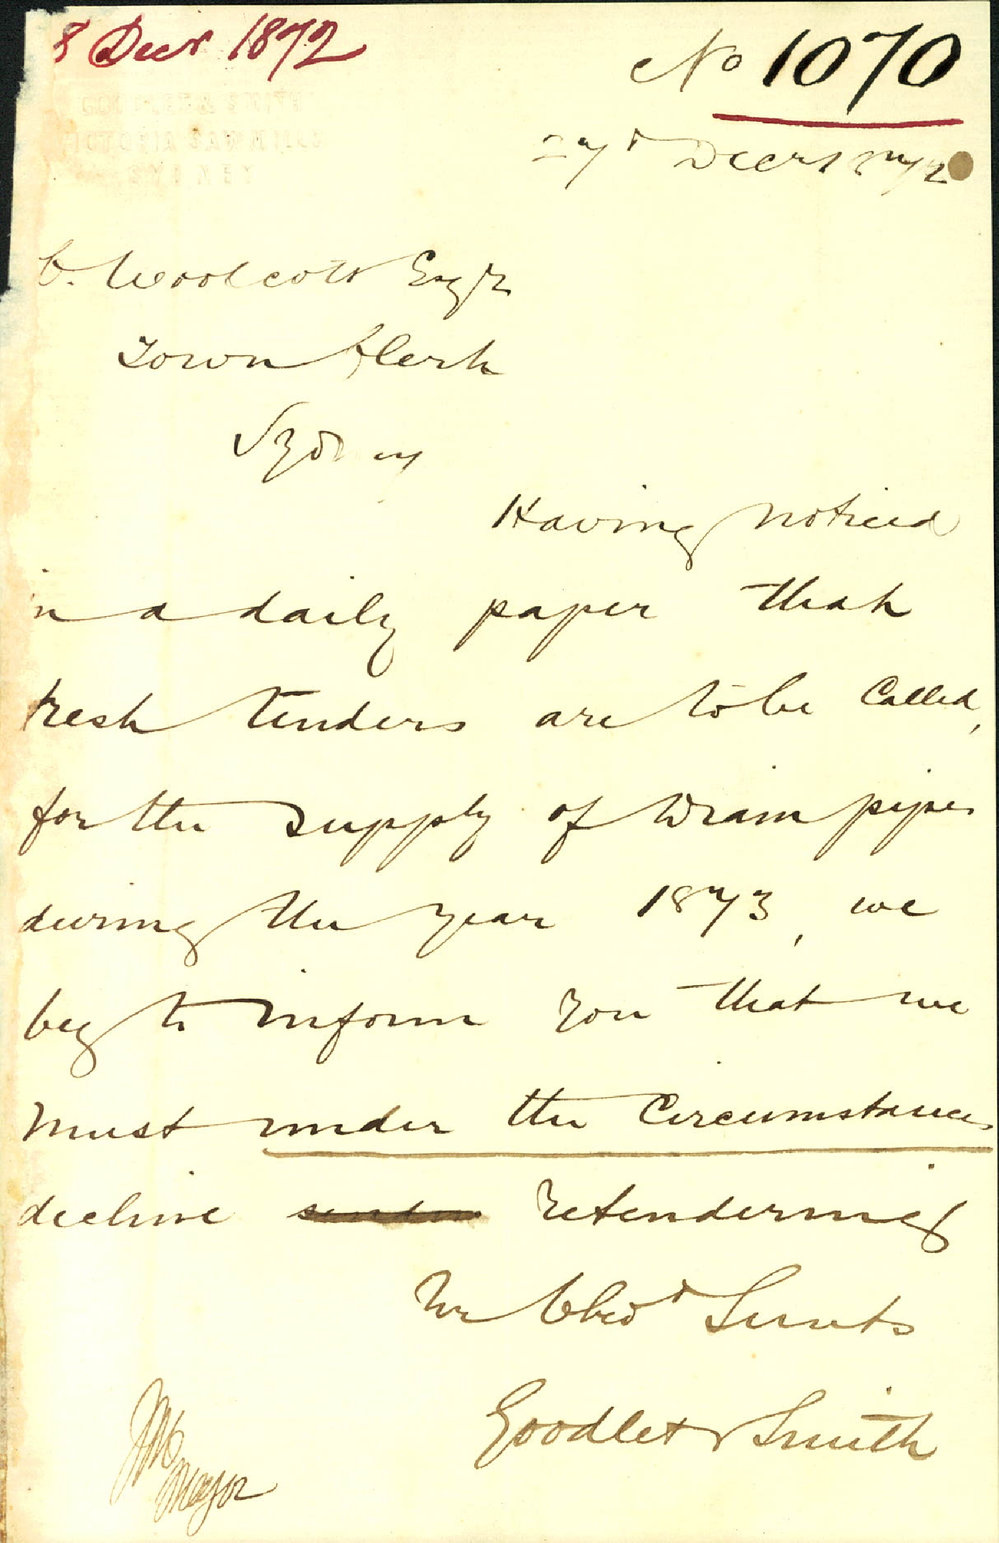 8 Decr 1872
No 1070
GOODLET & SMITH
VICTORIA SAWMILLS
SYDNEY
27th Decr 1872
C. Woolcott Esqr
Town Clerk
Sydney
Having noticed
in a daily paper that
fresh tenders are to be Called,
for the supply of Drain pipes
during the year 1873, we
beg to inform you that we
must under the Circumstances
decline retendering
Yr Obedt Servts
Goodlet & Smith
Mayor